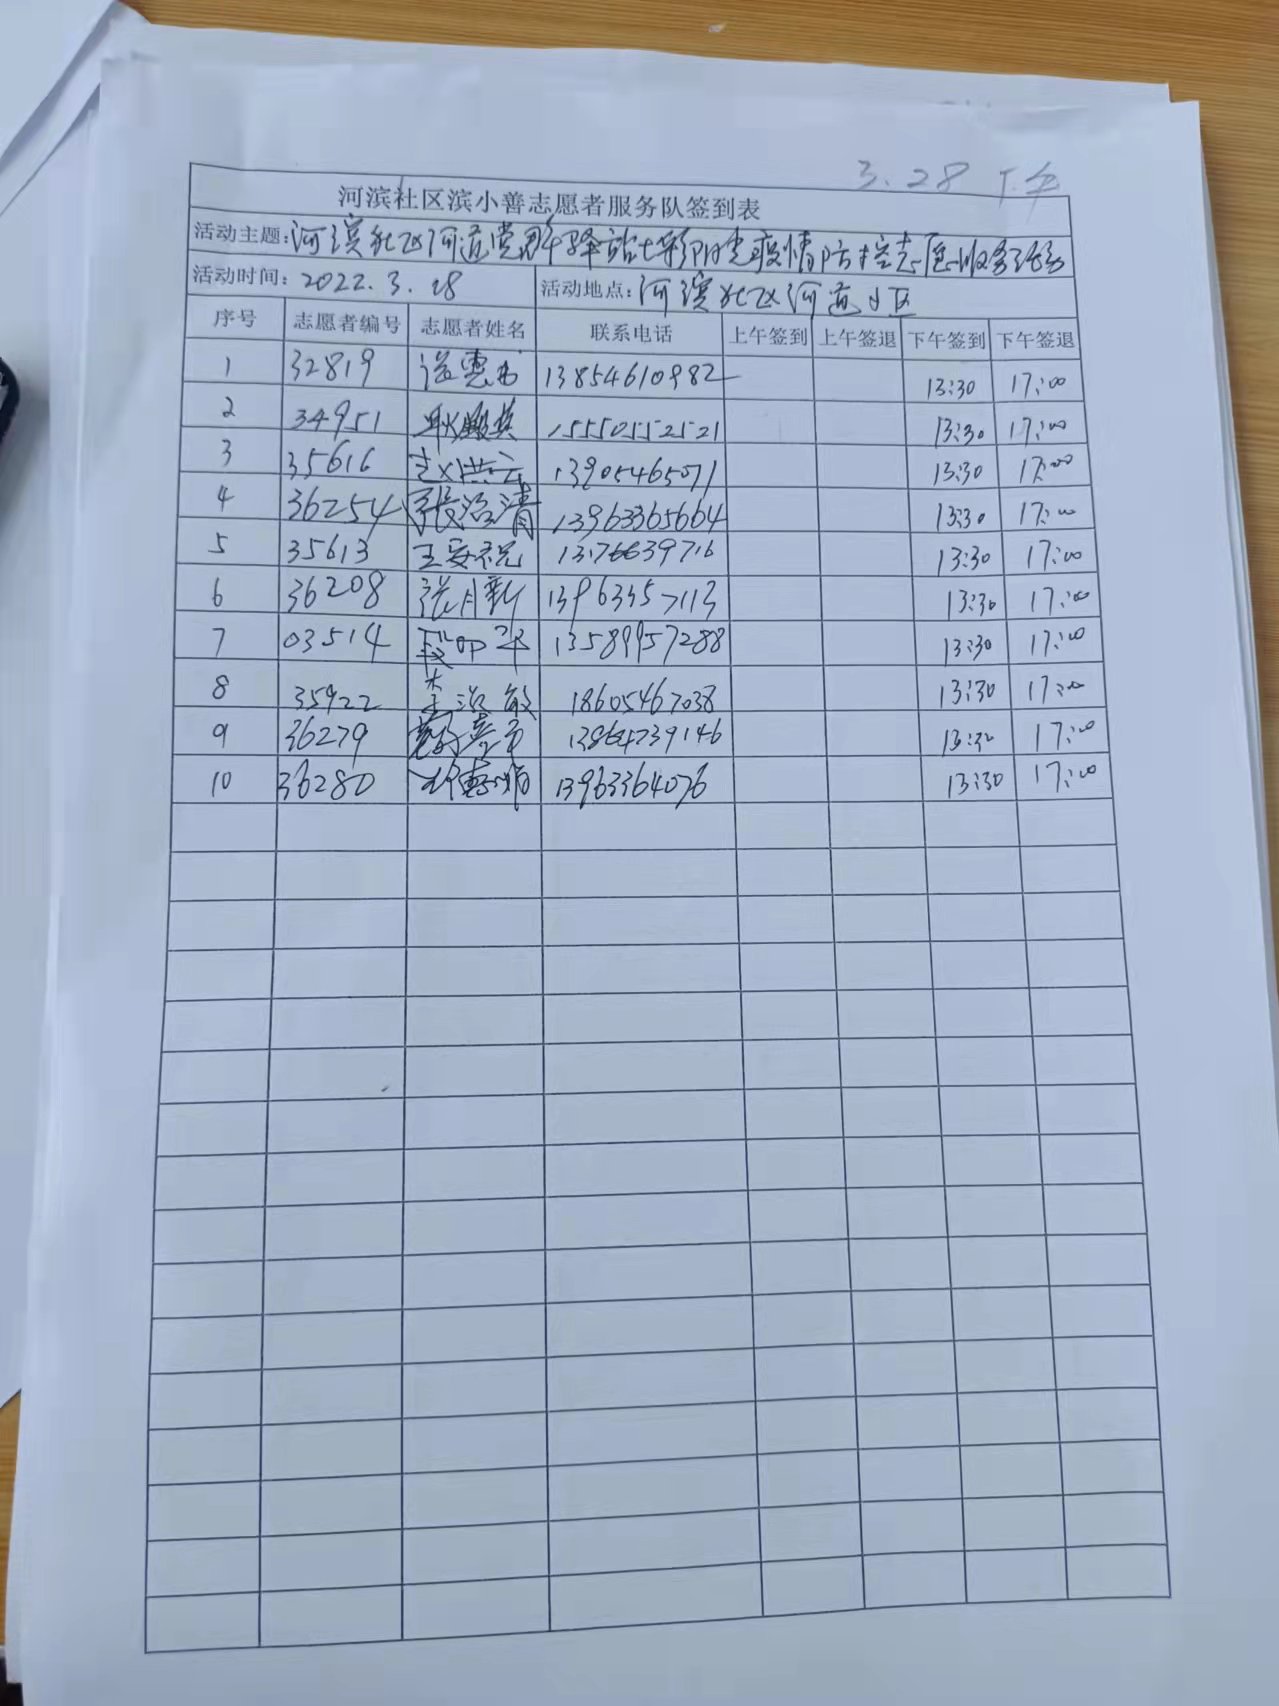 3.28 下午
河滨社区滨小善志愿者服务队签到表
活动主题:河滨社区河道党群驿站七彩阳光疫情防控志愿服务活动
活动时间: 2022.3.28 活动地点: 河滨社区河道小区
序号 志愿者编号 志愿者姓名 联系电话 上午签到 上午签退 下午签到 下午签退
1 32819 13854610982 13:30 17:00
2 34951 15550552521 13:30 17:00
3 35616 赵洪云 13905465071 13:30 17:00
4 36254 張治清 13963365664 13:30 17:00
5 35613 13:30 17:00
6 36208 张月新 13963357113 13:30 17:00
7 03514 13589957288 13:30 17:00
8 35922 18605467038 13:30 17:00
9 36279 13864739146 13:30 17:00
10 36280 13963364076 13:30 17:00